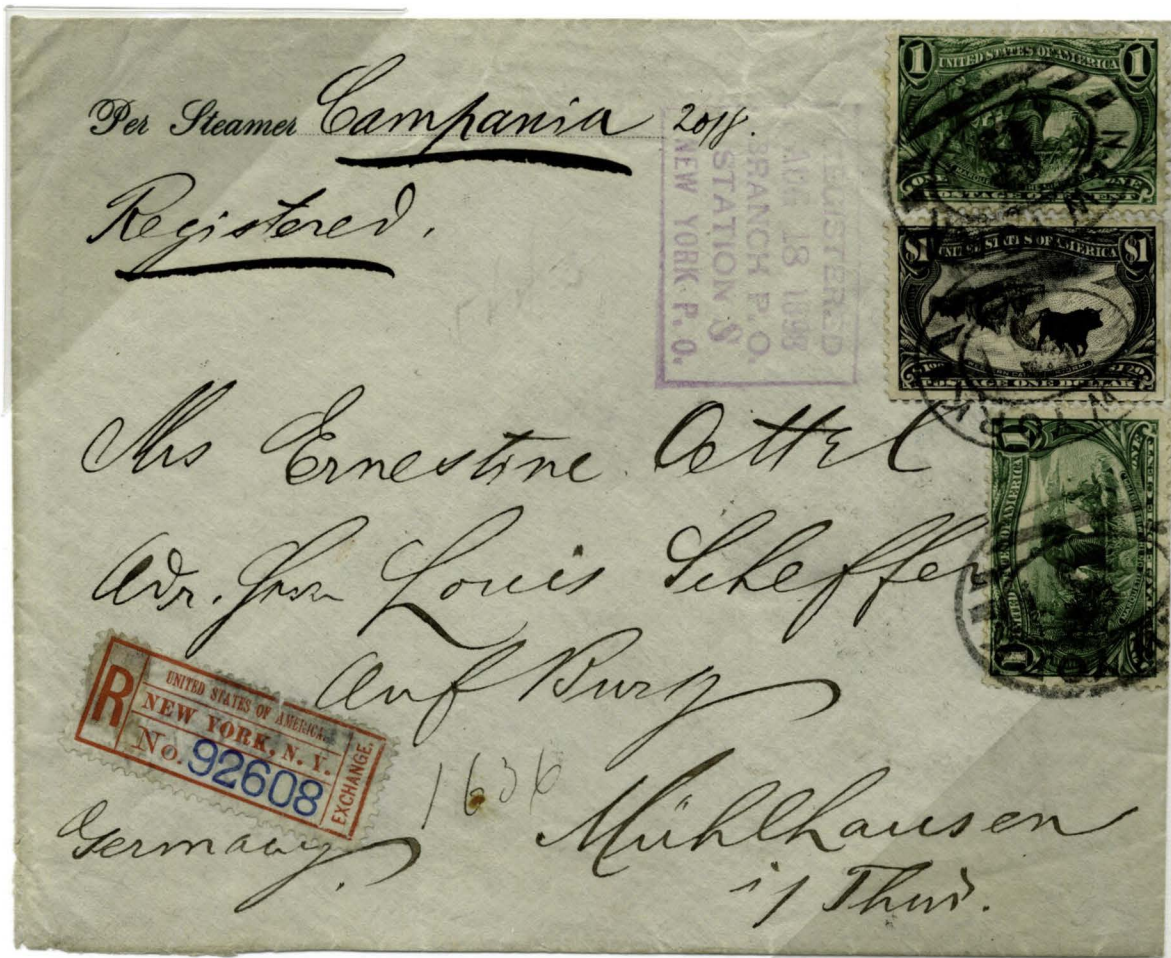 Per Steamer Campania 20/8.
Registered.
REGISTERED
AUG 18 1898
BRANCH P.O.
STATION S
NEW YORK P.O.
1 UNITED STATES OF AMERICA 1
POSTAGE ONE CENT
$1 UNITED STATES OF AMERICA $1
POSTAGE ONE DOLLAR
1 UNITED STATES OF AMERICA
1
NEW YORK
Mrs Ernestine Oettel
Adr. Louis Scheffer
Auf Burg
R
UNITED STATES OF AMERICA.
NEW YORK, N. Y.
No. 92608
EXCHANGE.
1636
Mühlhausen
Germany.
i/ Thür.